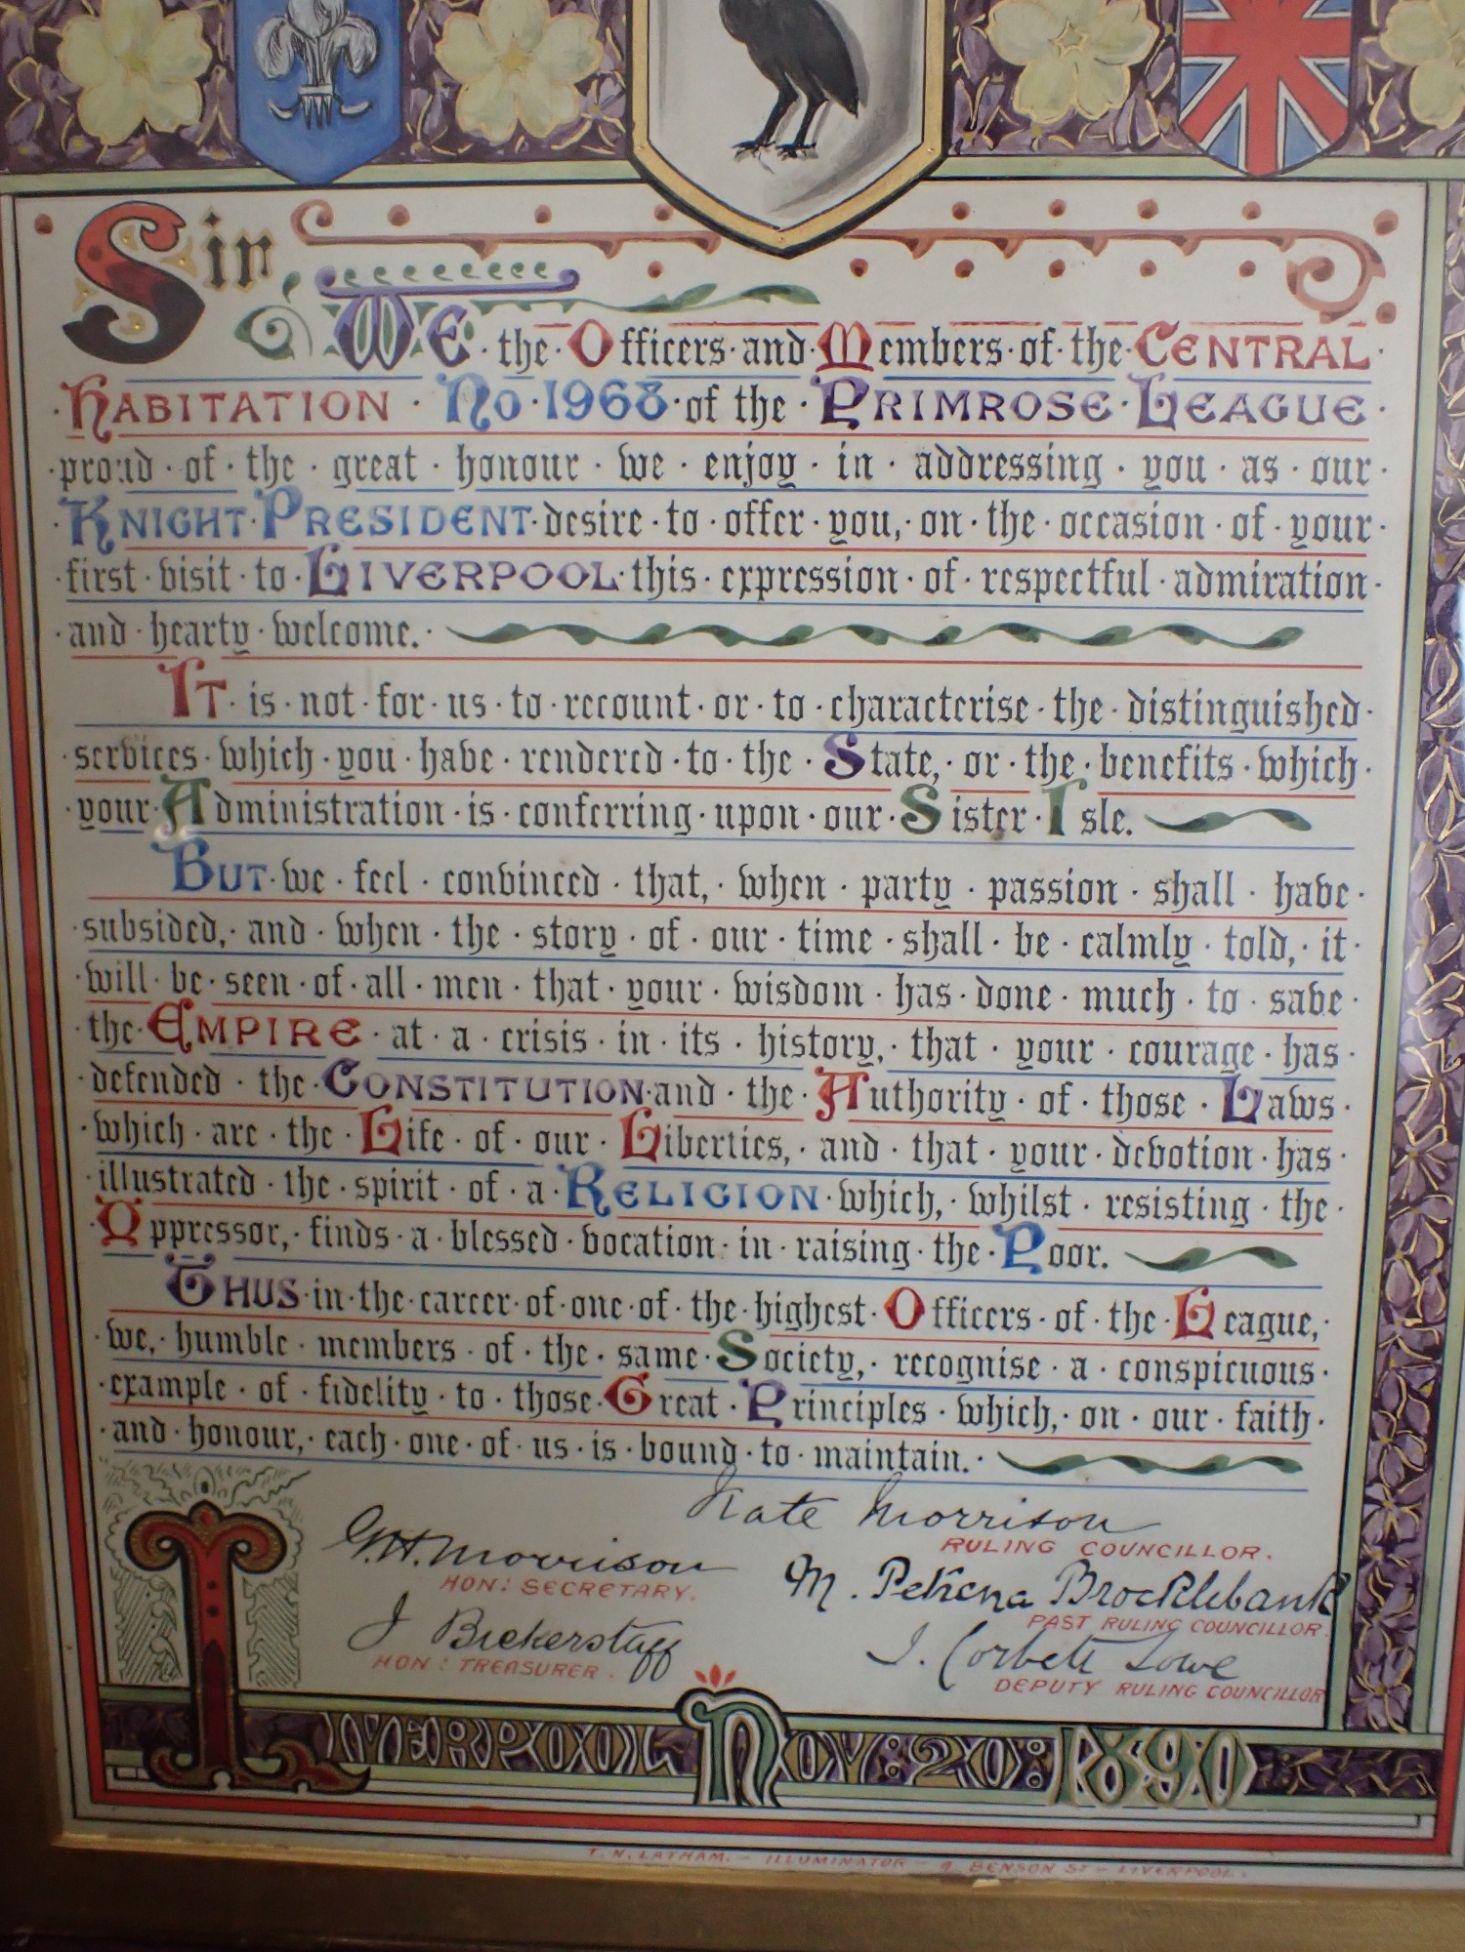 Sir
WE the Officers and Members of the CENTRAL
HABITATION No 1968 of the PRIMROSE LEAGUE
proud of the great honour we enjoy in addressing you as our
KNIGHT PRESIDENT desire to offer you, on the occasion of your
first visit to LIVERPOOL this expression of respectful admiration
and hearty welcome.
IT is not for us to recount or to characterise the distinguished
services which you have rendered to the State, or the benefits which
your Administration is conferring upon our Sister Isle.
BUT we feel convinced that, when party passion shall have
subsided, and when the story of our time shall be calmly told, it
will be seen of all men that your wisdom has done much to save
the EMPIRE at a crisis in its history, that your courage has
defended the CONSTITUTION and the Authority of those Laws
which are the Life of our Liberties, and that your devotion has
illustrated the spirit of a RELIGION which, whilst resisting the
Oppressor, finds a blessed vocation in raising the Poor.
THUS in the career of one of the highest Officers of the League,
we, humble members of the same Society, recognise a conspicuous
example of fidelity to those Great Principles which, on our faith
and honour, each one of us is bound to maintain.
Kate Morrison
RULING COUNCILLOR.
G.H. Morrison
HON: SECRETARY.
M. Petrena Brocklebank
PAST RULING COUNCILLOR.
J Bickerstaff
HON: TREASURER.
J. Corbett Lowe
DEPUTY RULING COUNCILLOR
LIVERPOOL NOV: 20: 1890
T. N. LATHAM. - ILLUMINATOR - 9. BENSON ST - LIVERPOOL.